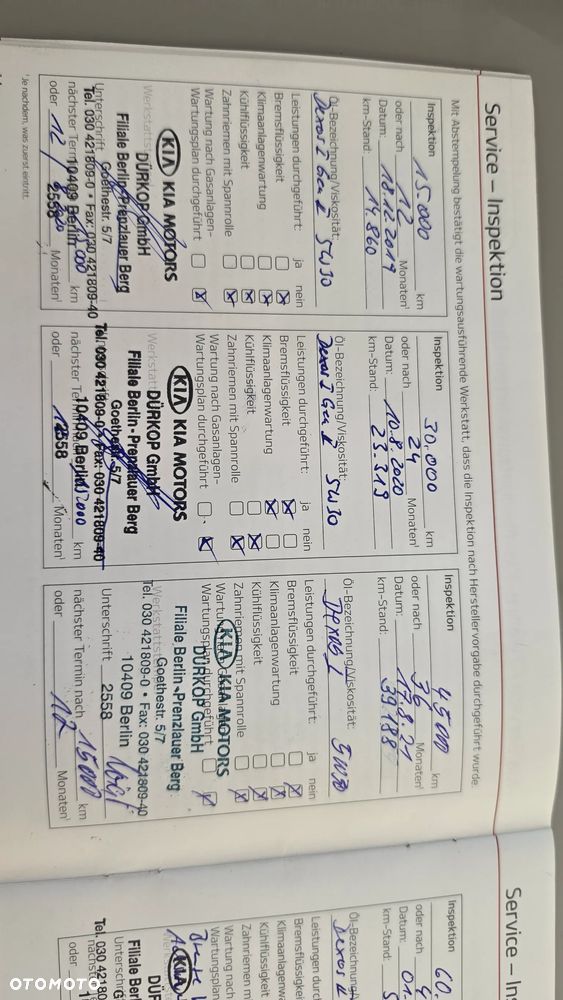 Service – Inspektion
Mit Abstempelung bestätigt die wartungsausführende Werkstatt, dass die Inspektion nach Herstellervorgabe durchgeführt wurde.
Inspektion 15.000 km
oder nach 12 Monaten¹
Datum: 18.12.2019
km-Stand: 14.860
Öl-Bezeichnung/Viskosität:
5W30
Leistungen durchgeführt: ja nein
Bremsflüssigkeit
Klimaanlagenwartung
Kühlflüssigkeit
Zahnriemen mit Spannrolle
Wartung nach Gasanlagen-
Wartungsplan durchgeführt
KIA KIA MOTORS
DÜRKOP GmbH
Filiale Berlin-Prenzlauer Berg
Goethestr. 5/7
10409 Berlin
Tel. 030 421809-0 • Fax: 030 421809-40
Unterschrift
2558
nächster Termin km
oder 12 Monaten¹
¹ Je nachdem, was zuerst eintritt.
Inspektion 30.000 km
oder nach 24 Monaten¹
Datum: 10.8.2020
km-Stand: 23.319
Öl-Bezeichnung/Viskosität:
5W30
Leistungen durchgeführt: ja nein
Bremsflüssigkeit
Klimaanlagenwartung
Kühlflüssigkeit
Zahnriemen mit Spannrolle
Wartung nach Gasanlagen-
Wartungsplan durchgeführt
KIA KIA MOTORS
DÜRKOP GmbH
Filiale Berlin-Prenzlauer Berg
Goethestr. 5/7
10409 Berlin
Tel. 030 421809-0 • Fax: 030 421809-40
2558
nächster km
oder Monaten¹
Inspektion 45000 km
oder nach 36 Monaten¹
Datum: 17.8.21
km-Stand: 39188
Öl-Bezeichnung/Viskosität:
5W30
Leistungen durchgeführt: ja nein
Bremsflüssigkeit
Klimaanlagenwartung
Kühlflüssigkeit
Zahnriemen mit Spannrolle
Wartungsplan durchgeführt
KIA KIA MOTORS
DÜRKOP GmbH
Filiale Berlin-Prenzlauer Berg
Goethestr. 5/7
10409 Berlin
Tel. 030 421809-0 • Fax: 030 421809-40
Unterschrift 2558
nächster Termin nach 15000 km
oder 12 Monaten¹
Service – In
Inspektion 60.
oder nach
Datum: 01.
km-Stand:
Öl-Bezeichnung
Leistungen durch
Bremsflüssigkeit
Klimaanlagenwa
Kühlflüssigkeit
Zahnriemen mit
Wartung nach
Wartungsplan
KIA
DÜR
Filiale Berl
Tel. 030 421809
Unterschri
OTOMOTO